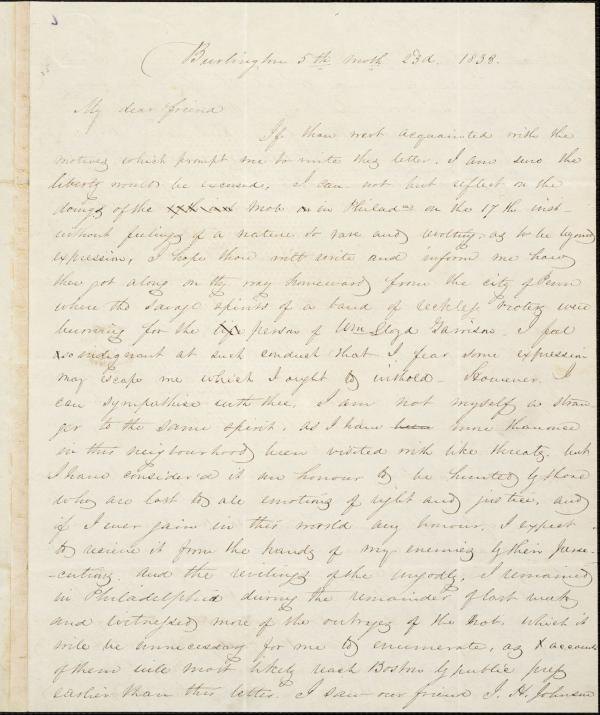 Burlington 5th moth 23d. 1838.
My dear friend
If thou wert acquainted with the
motives which prompt me to write this letter. I am sure the
liberty would be excused, I can not but reflect on the
doings of the mob in Philada on the 17th inst-
without feelings of a nature so rare and revolting as to be beyond
expression, I hope thou will write and inform me how
thou got along on thy way homeward from the city of Penn
where the savage spirits of a band of reckless rioters were
burning for the person of Wm Lloyd Garrison. I feel
so indignant at such conduct that I fear some expression
may escape me which I ought to withold - However. I
can sympathise with thee. I am not myself a stran-
ger to the same spirit. as I have been more than once
in this neighbourhood been visited with like threats. but
I have consider'd it an honour to be hunted by those
who are lost to all emotions of right and justice, and
if I ever gain in this world any honour. I expect
to receive it from the hands of my enemies by their perse-
-cutions. and the revilings of the ungodly. I remained
in Philadelphia during the remainder of last week
and witnessed more of the outrages of the mob. which it
will be unnecessary for me to enumerate, as accounts
of them will most likely reach Boston by public press
earlier than this letter. I saw our friend J. H. Johnson